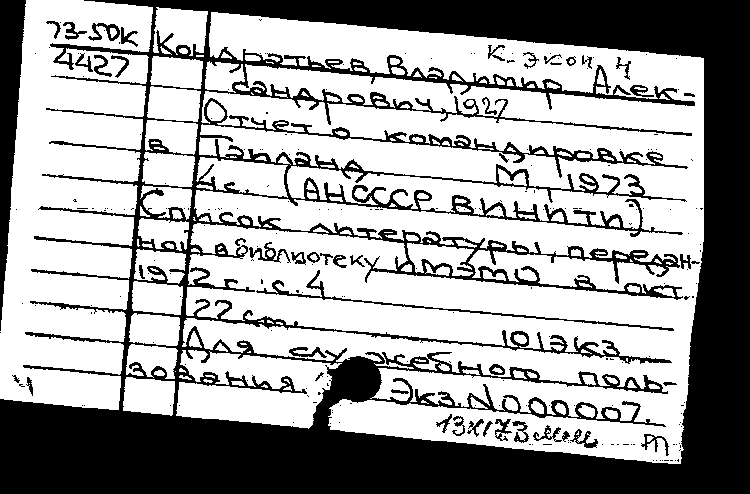 73-50к
4427
к. экон. ч
Кондратьев, Владимир Алек-
сандрович, 1927
Отчет о командировке
в Таиланд. М, 1973
4с. (АНСССР. ВИНИТИ).
Список литературы, передан-
ной в библиотеку ИМЭМО в окт.
1972 г.: с. 4
22 cm. 101экз.
Для служебного поль-
зования. Экз. N000007.
ч